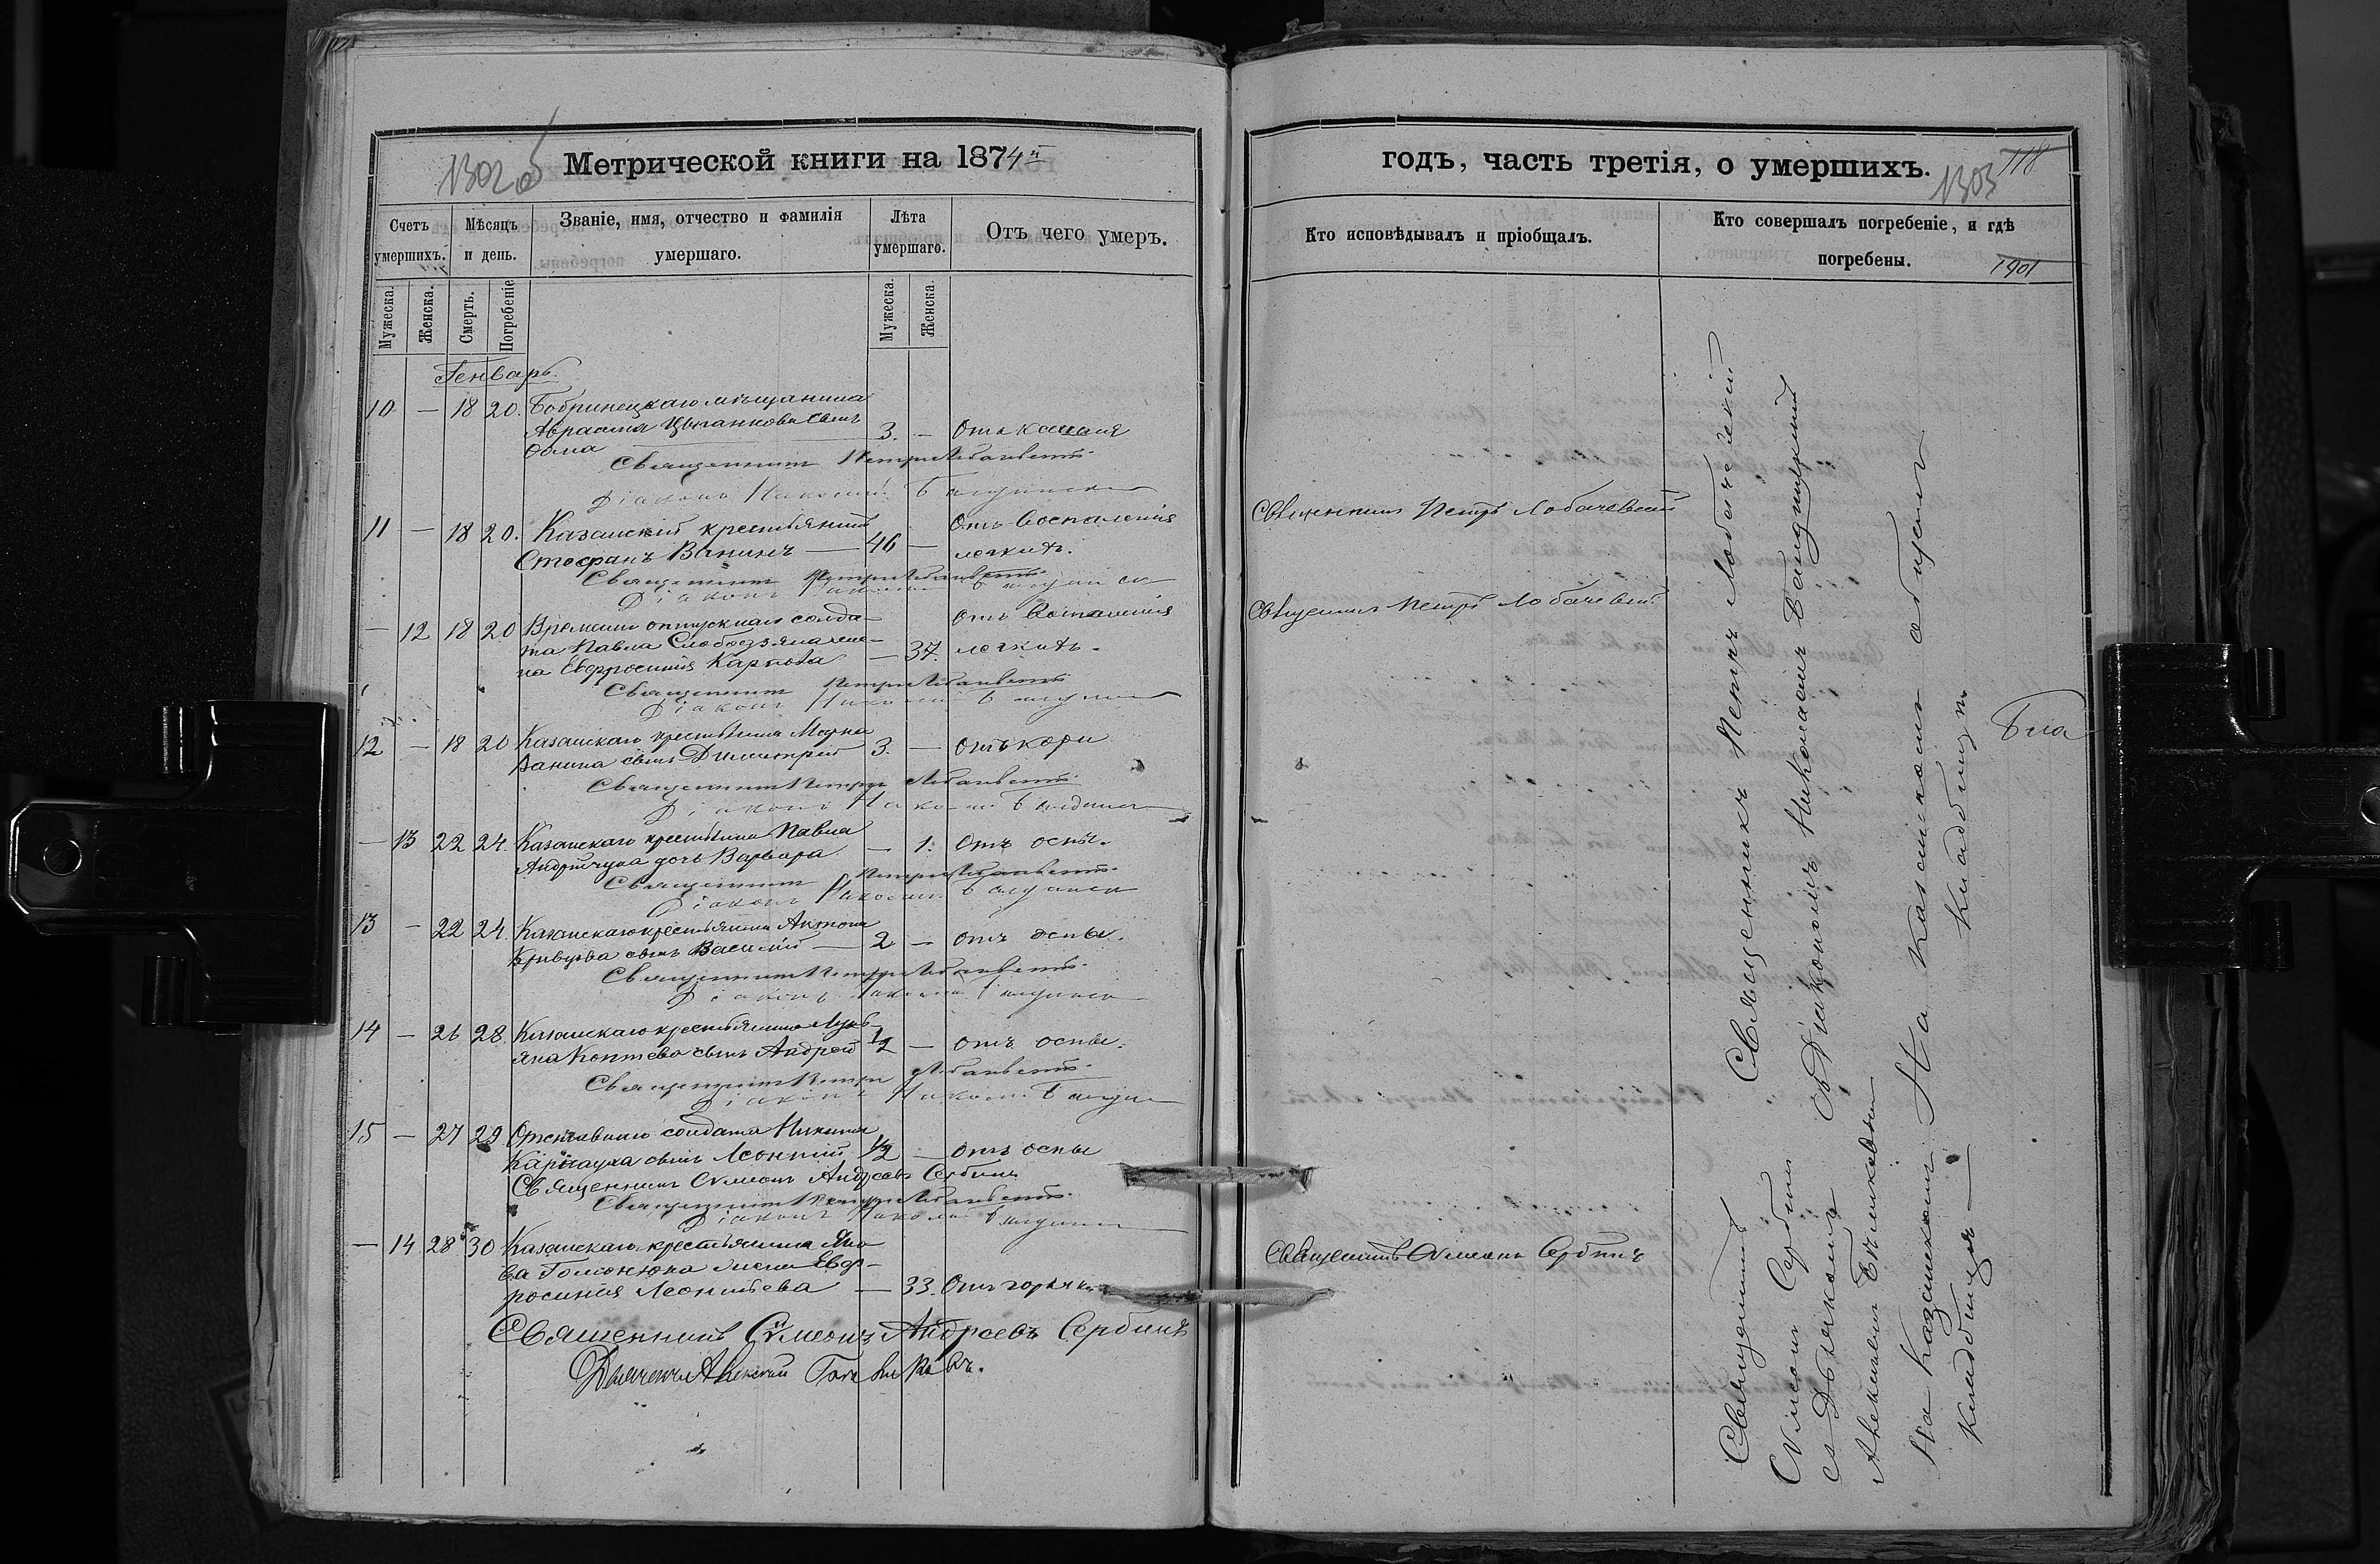 1302 об
Метрической книги на 1874й
Счетъ умершихъ.
Мѣсяцъ и день.
Званіе, имя, отчество и фамилія умершаго.
Лѣта умершаго.
Отъ чего умеръ.
Мужеска.
Женска.
Смерть.
Погребеніе
Мужеска.
Женска.
Генварь.
10 — 18 20. Бобринецкаго мѣщанина
Авраамія Цыганкова сынъ
Ѳома 3. — Отъ кашля
Священникъ Петръ Лобачевскій
Діаконъ Николай
11 — 18 20. Казанскій крестьянинъ Отъ воспаленія
Стефанъ Ванинъ — 46 — легкихъ.
Священникъ Петръ Лобачевскій
Діаконъ Николай
— 12 18 20 Временно отпускнаго солда- Отъ воспаленія
та Павла жена
Евфросинія Карпова — 37. легкихъ.
Священникъ Петръ Лобачевскій
Діаконъ Николай
12 — 18 20 Казанскаго крестьянина Марка
Ванина сынъ Димитрій 3. — Отъ кори
Священникъ Петръ Лобачевскій
Діаконъ Николай
— 13 22 24. Казанскаго крестьянина Павла
Андрійчука дочь Варвара — 1. Отъ оспы.
Священникъ Петръ Лобачевскій
Діаконъ Николай
13 — 22 24. Казанскаго крестьянина Антона
Кривцова сынъ Василій — 2 — отъ оспы.
Священникъ Петръ Лобачевскій
Діаконъ Николай
14 — 26 28. Казанскаго крестьянина Лукь-
яна Коптева сынъ Андрей 1/2 — отъ оспы.
Священникъ Петръ Лобачевскій
Діаконъ Николай
15 — 27 29 Отставнаго солдата Никиты
Карнауха сынъ Леонтій 1/2 — отъ оспы
Священникъ Сѵмеонъ Андреевъ Сербинъ
Священникъ Петръ Лобачевскій
Діаконъ Николай
— 14 28 30 Казанскаго крестьянина Яко-
ва жена Евф-
росинія Леонтьева — 33. Отъ горячки
Священникъ Сѵмеонъ Андреевъ Сербинъ
Дьячекъ Алексій
годъ, часть третія, о умершихъ.
1303
118
Кто исповѣдывалъ и пріобщалъ.
Кто совершалъ погребеніе, и гдѣ погребены.
1901
Священникъ Петръ Лобачевскій
Священникъ Петръ Лобачевскій
Священникъ Сѵмеонъ Сербинъ
Священникъ Петръ Лобачевскій
съ Діакономъ Николаемъ
На Казанскомъ общемъ
кладбищѣ
Священникъ
Сѵмеонъ Сербинъ
съ Дьячкомъ
Алексіемъ
На Казанскомъ
кладбищѣ